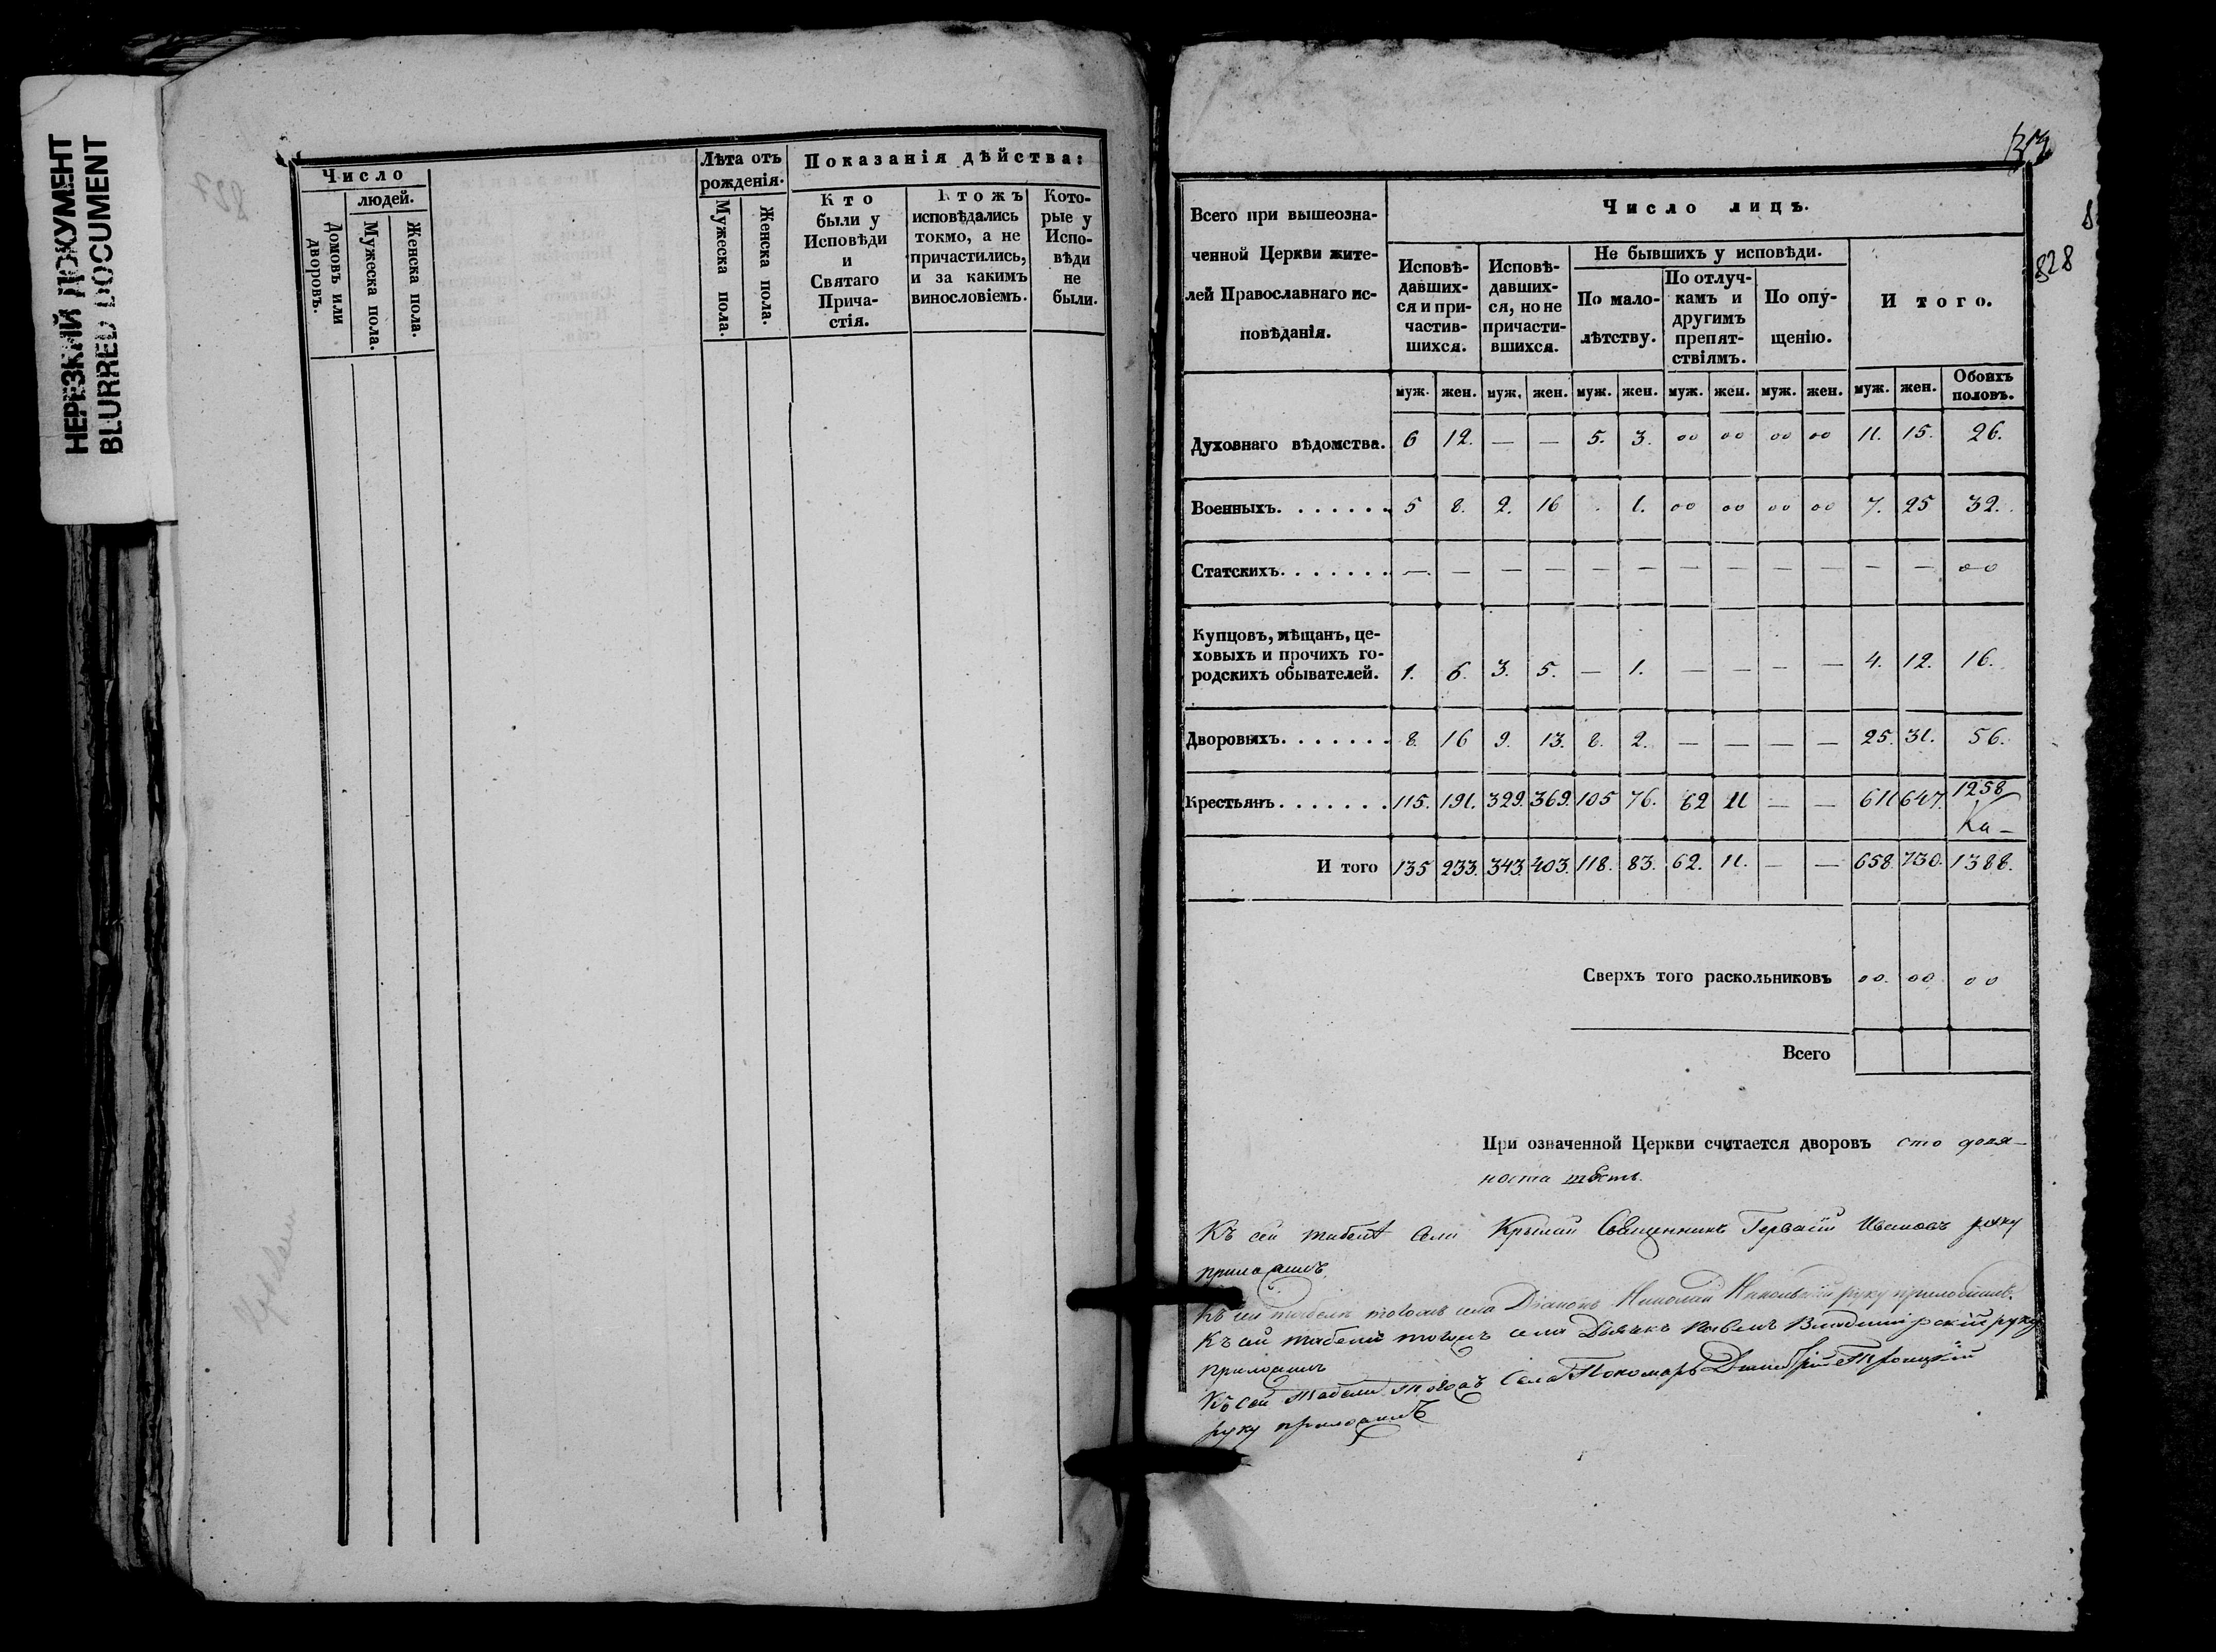 НЕРЕЗКИЙ ДОКУМЕНТ
BLURRED DOCUMENT
Число
людей.
Домовъ или дворовъ.
Мужеска пола.
Женска пола.
Лѣта отъ
рожденія.
Мужеска пола.
Женска пола.
Показанія дѣйства:
Кто
были у
Исповѣди
и
Святаго
Прича-
стія.
Ктожъ
исповѣдались
токмо, а не
причастились,
и за какимъ
винословіемъ.
Кото-
рые у
Испо-
вѣди
не
были.
828
Всего при вышеозна-
ченной Церкви жите-
лей Православнаго ис-
повѣданія.
Число лицъ.
Исповѣ-
давших-
ся и при-
частив-
шихся.
Исповѣ-
давших-
ся, но не
причасти-
вшихся.
Не бывшихъ у исповѣди.
По мало-
лѣтству.
По отлуч-
камъ и
другимъ
препят-
ствіямъ.
По опу-
щенію.
И того.
муж. жен. муж. жен. муж. жен. муж. жен. муж. жен. муж. жен. Обоихъ половъ.
Духовнаго вѣдомства. 6 12. — — 5. 3. оо оо оо оо 11. 15. 26.
Военныхъ. . . . . . . 5 8. 2. 16 . 1. оо оо оо оо 7. 25 32.
Статскихъ. . . . . . . — — — — — — — — — — — — оо
Купцовъ, мѣщанъ, це-
ховыхъ и прочихъ го-
родскихъ обывателей. 1. 6. 3. 5. — 1. — — — — 4. 12. 16.
Дворовыхъ. . . . . . . 8. 16 9. 13. 8. 2. — — — — 25. 31. 56.
Крестьянъ. . . . . . . 115. 191. 329. 369. 105 76. 62 11 — — 611 647. 1258
И того 135 233. 343. 403. 118. 83. 62. 11. — — 658. 730. 1388.
Сверхъ того раскольниковъ оо. оо оо
Всего
При означенной Церкви считается дворовъ сто девя-
носта шесть.
Къ сей табели села Крылай Священникъ Герваsiй Ивановъ руку
приложилъ
Къ сей табели тогожъ села Діаконъ Николай Никольскій руку приложилъ.
Къ сей табели тогожъ села Дьячекъ Павелъ Владимірскій руку
приложилъ
Къ сей табели тогожъ села Пономарь Димитрій Троицкій
руку приложилъ